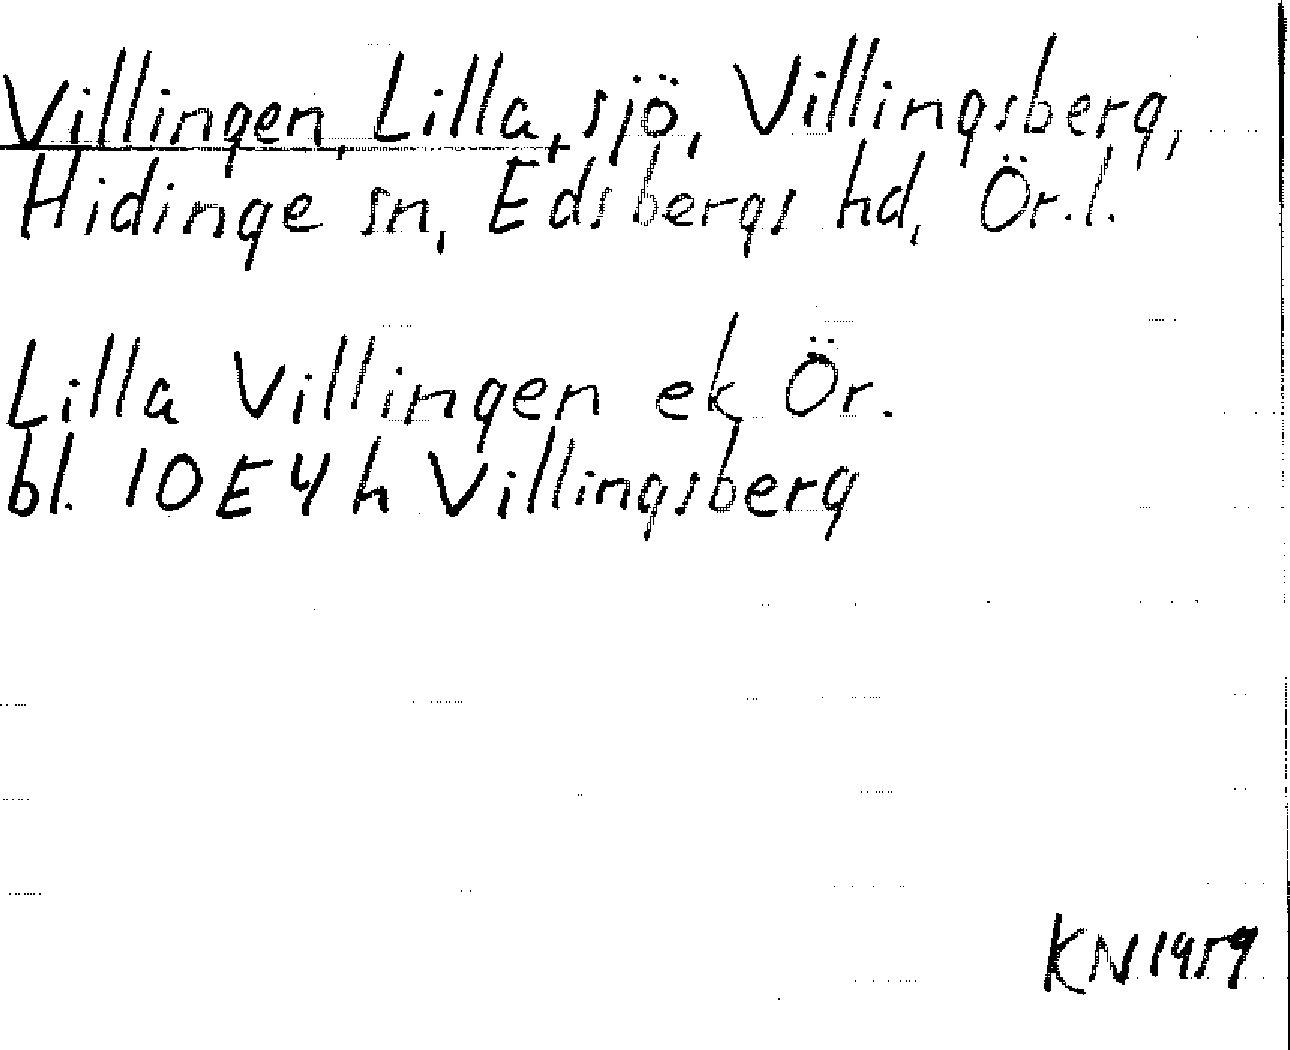 Villingen, Lilla, sjö, Villingsberg,
Hidinge sn, Edsbergs hd, Ör.l.
Lilla Villingen ek Ör.
bl. 10E4h Villingsberg
KN1959